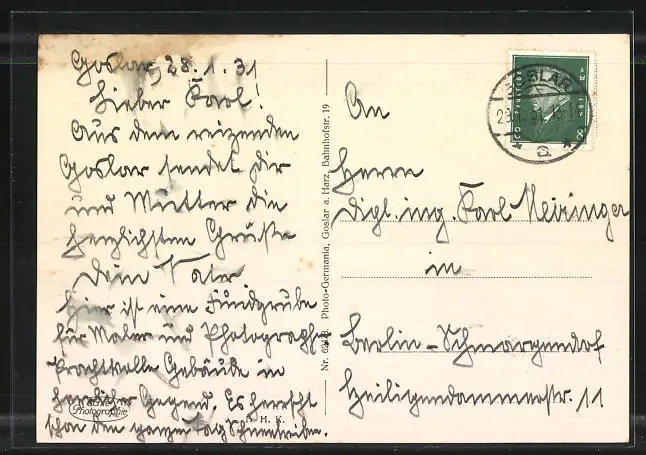 Goslar, 28.1.31
Lieber Karl!
Aus dem reizenden
Goslar sendet dir
und Mutter die
herzlichsten Grüße
Dein Vater
Hier ist eine Fundgrube
für Maler und Photographen
prachtvolle Gebäude in
herrlicher Gegend. Es herrscht
schon den ganzen Tag Schneetreiben.
Echte
Photographie
R. H. K.
Nr. 6248 Photo-Germania, Goslar a. Harz, Bahnhofstr. 19
GOSLAR
a
An
Herrn
Dipl. ing. Karl Meiringer
in
Berlin-Schmargendorf
Heiligendammerstr. 11